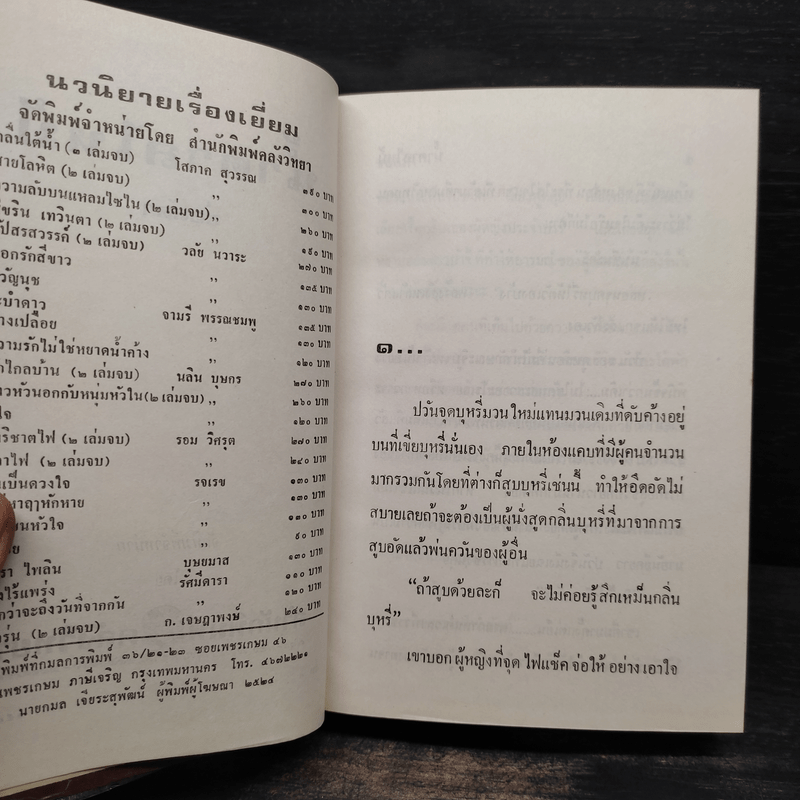 นวนิยายเรื่องเยี่ยม
จัดพิมพ์จำหน่ายโดย สำนักพิมพ์คลังวิทยา
คลื่นใต้น้ำ (๑ เล่มจบ) โสภาค สุวรรณ ๓๙๐ บาท
สายโลหิต (๒ เล่มจบ) ,, ๓๐๐ บาท
ความลับบนแหลมไซไน (๒ เล่มจบ) ,, ๒๖๐ บาท
เทวินตา (๒ เล่มจบ) ,, ๑๙๐ บาท
(๒ เล่มจบ) วลัย นวาระ ๒๗๐ บาท
ดอกรักสีขาว ,, ๑๓๕ บาท
ขวัญนุช ,, ๑๓๐ บาท
ระบำดาว จามรี พรรณชมพู ๑๓๕ บาท
นางเปลือย ,, ๑๓๐ บาท
ความรักไม่ใช่หยาดน้ำค้าง ,, ๑๒๐ บาท
ไกลบ้าน (๒ เล่มจบ) นลิน บุษกร ๒๗๐ บาท
สาวหัวนอกกับหนุ่มหัวใน (๒ เล่มจบ) ,, ๒๖๐ บาท
ใจ ,, ๑๒๐ บาท
ปาริชาตไฟ (๒ เล่มจบ) รอม วิศรุต ๒๗๐ บาท
ไฟ (๒ เล่มจบ) ,, ๒๔๐ บาท
เป็นดวงใจ รจเรข ๑๓๐ บาท
หาฤาหักหาย ,, ๑๓๐ บาท
หัวใจ ,, ๑๓๐ บาท
,, ๙๐ บาท
ไพลิน บุษยมาส ๑๓๐ บาท
ไร้แพร่ง รัศมีดารา ๑๑๐ บาท
กว่าจะถึงวันที่จากกัน ,, ๑๒๐ บาท
รุ่น (๒ เล่มจบ) ก. เจษฎาพงษ์ ๒๔๐ บาท
พิมพ์ที่กมลการพิมพ์ ๓๖/๒๑-๒๓ ซอยเพชรเกษม ๔๖
เพชรเกษม ภาษีเจริญ กรุงเทพมหานคร โทร. ๔๖๗๒๒๒๑
นายกมล เจียระสุพัฒน์ ผู้พิมพ์ผู้โฆษณา ๒๕๒๔
๑...
ปวันจุดบุหรี่มวนใหม่แทนมวนเดิมที่ดับค้างอยู่
บนที่เขี่ยบุหรี่นั่นเอง ภายในห้องแคบที่มีผู้คนจำนวน
มากรวมกันโดยที่ต่างก็สูบบุหรี่เช่นนี้ ทำให้อึดอัดไม่
สบายเลยถ้าจะต้องเป็นผู้นั่งสูดกลิ่นบุหรี่ที่มาจากการ
สูบอัดแล้วพ่นควันของผู้อื่น
“ถ้าสูบด้วยละก็ จะไม่ค่อยรู้สึกเหม็นกลิ่น
บุหรี่”
เขาบอก ผู้หญิงที่จุด ไฟแช็ค จ่อให้ อย่าง เอาใจ